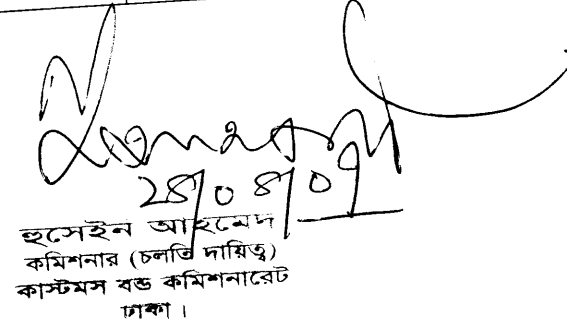 28/08/09
হুসেইন আহমেদ
কমিশনার (চলতি দায়িত্ব)
কাস্টমস বন্ড কমিশনারেট
ঢাকা।